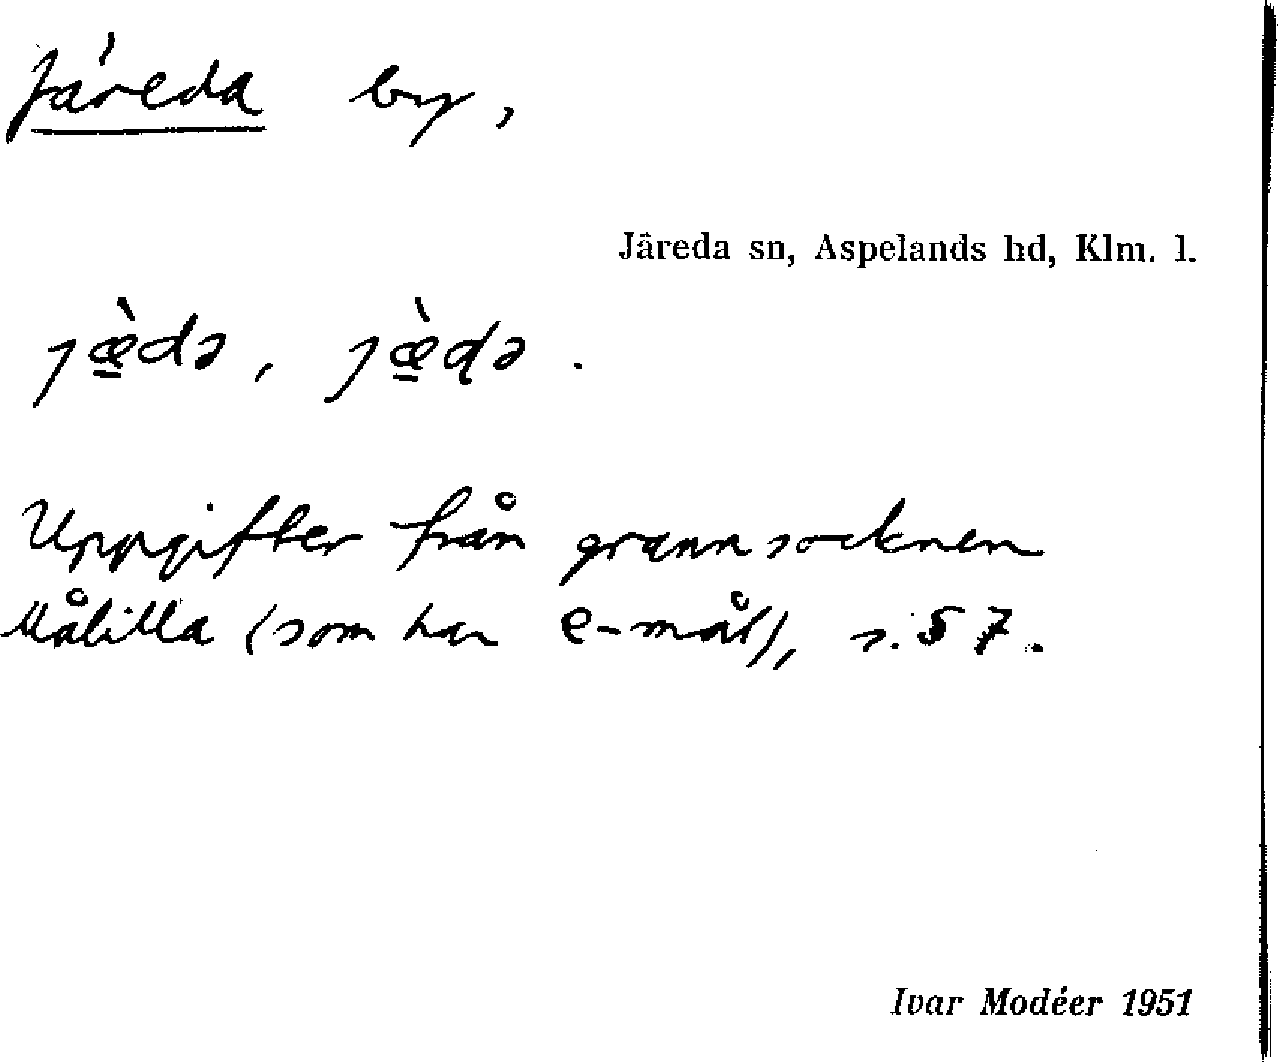 Järeda by,
Järeda sn, Aspelands hd, Klm. l.
jæ̠̀də, jæ̠̀ɖə.
Uppgifter från grannsocknen
Målilla (som har e-mål), s. 57.
Ivar Modéer 1951